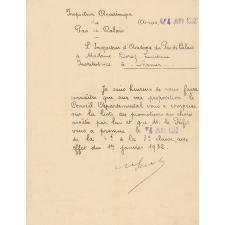 Inspection Académique
du
Pas-de-Calais
Arras, 4 JANV 1932
L'Inspecteur d'Académie du Pas de Calais
à Madame
Institutrice à
Je suis heureux de vous faire
connaître que sur ma proposition le
Conseil Départemental vous a comprise
sur la liste des promotions au choix
arrêtée par lui et que M. le Préfet
vous a promue le 4 JANV 1932
de la 4e à la 3e classe, avec
effet du 1er janvier 1932.